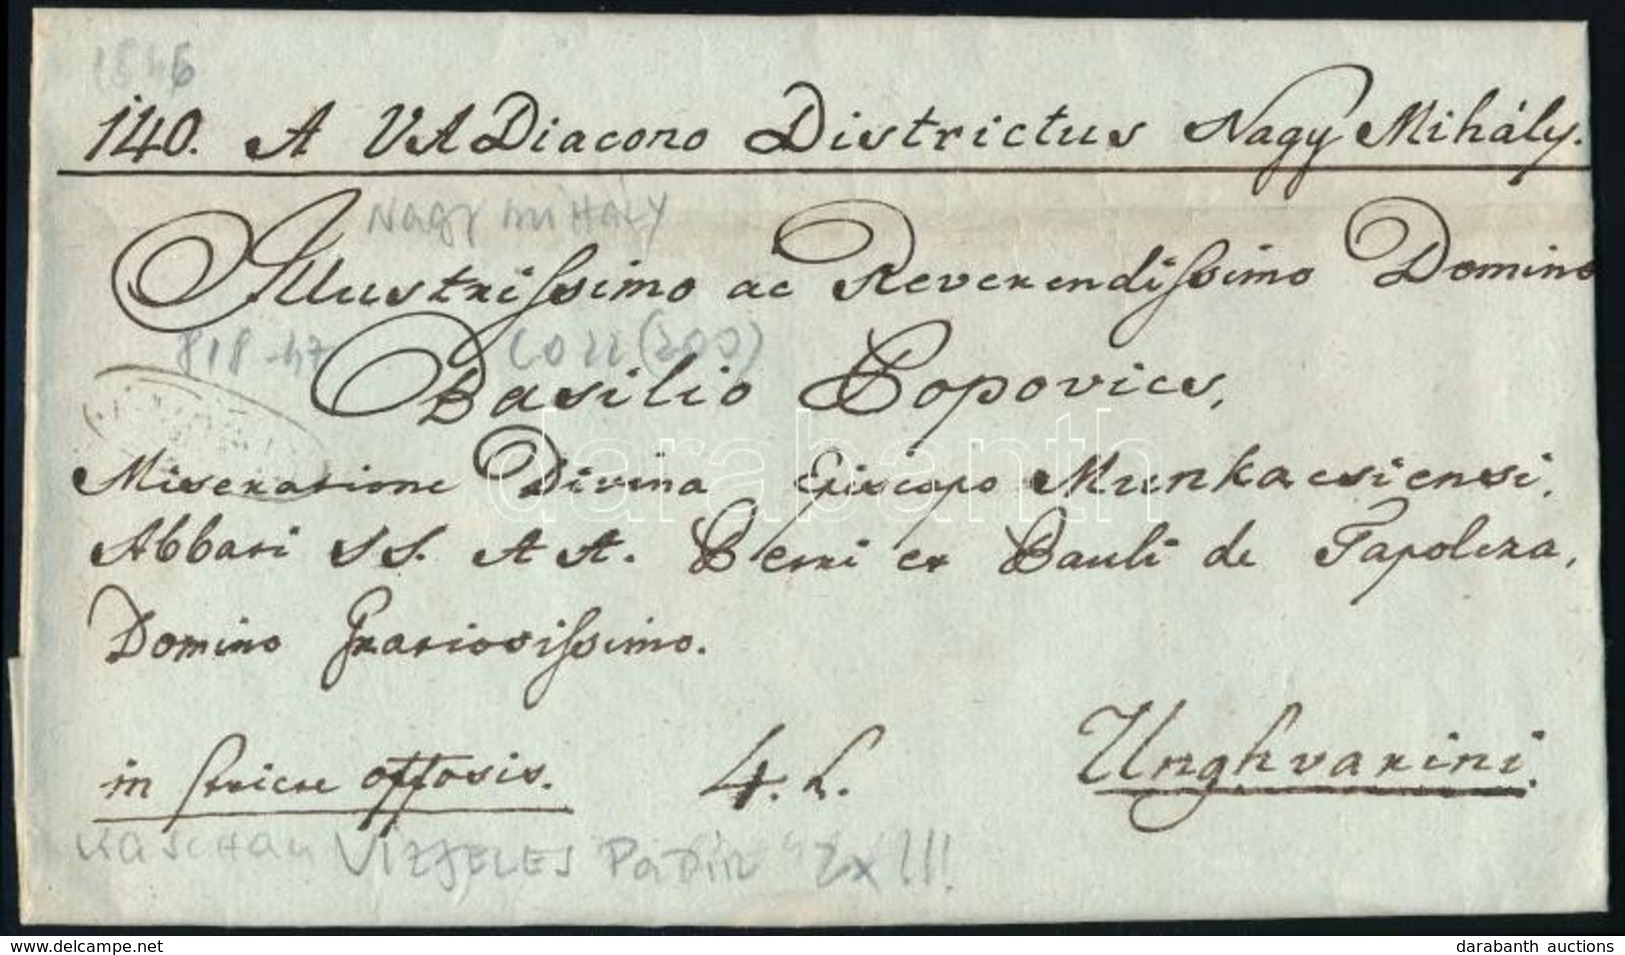 1846
140. A VA Diacono Districtus Nagy Mihály.
NAGY MIHALY
Illustrissimo ac Reverendissimo Domino
818-47
Basilio Popovics,
darabanth
Miseratione Divina Episcopo Munkacsiensi,
Abbati SS. A A. Petri et Pauli de Tapolcza,
Domino Gratiosissimo.
in stricte officiosis. 4. L. Unghvarini.
KASCHAU VIZJELES PAPIR
www.delcampe.net
darabanth auctions